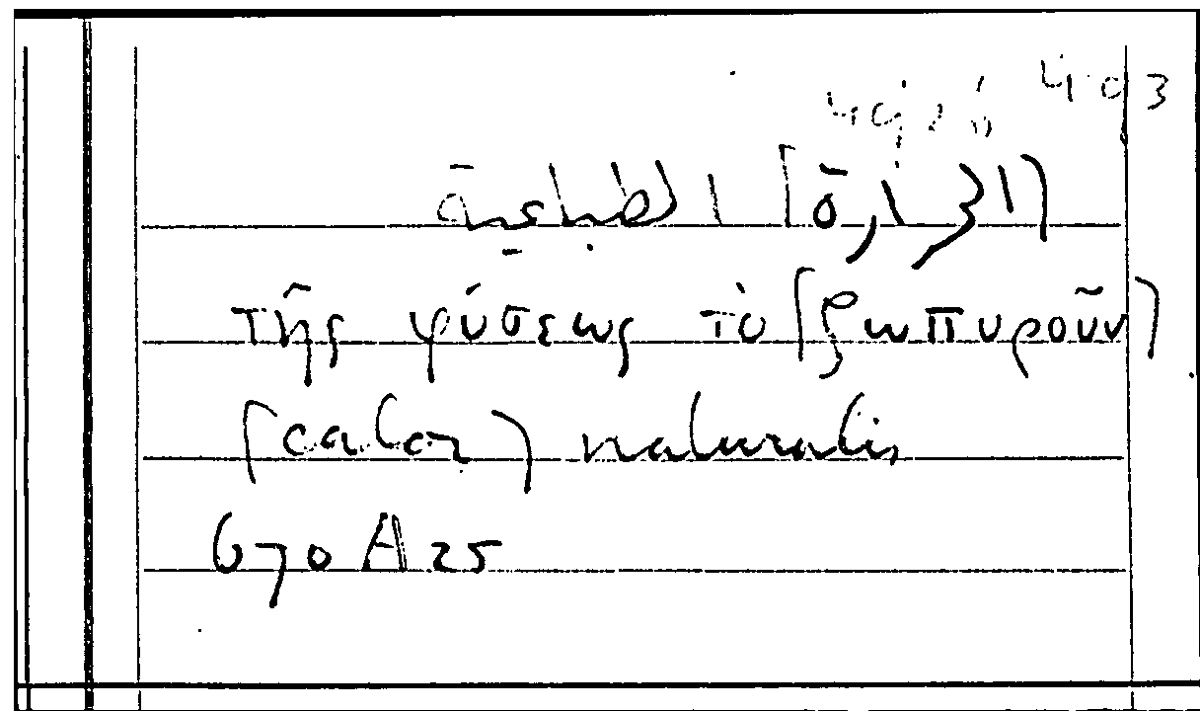 [الحرارة] الطبيعية
τῆς φύσεως τὸ [ζωπυροῦν]
[calor] naturalis
670 A 25